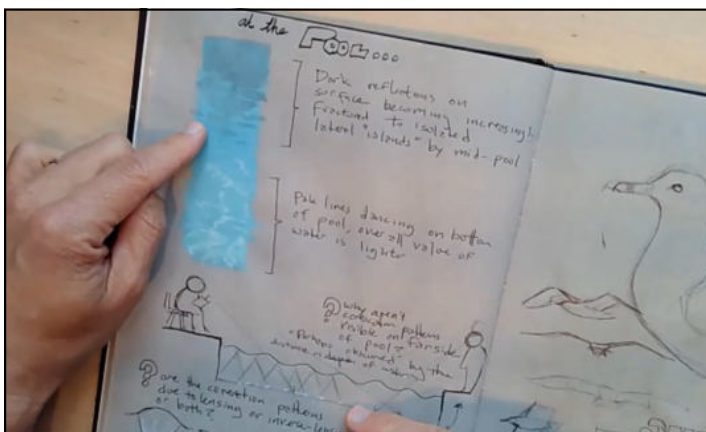 at the POOL...
Dark reflections on
surface becoming increasingly
fractured to isolated
lateral "islands" by mid-pool
Pale lines dancing on bottom
of pool, overall value of
water is lighter
? why aren't
patterns
visible on far side
of pool?
"Perhaps obscured" by the
distance
? are the convection patterns
due to lensing or inverse-lensing
or both?